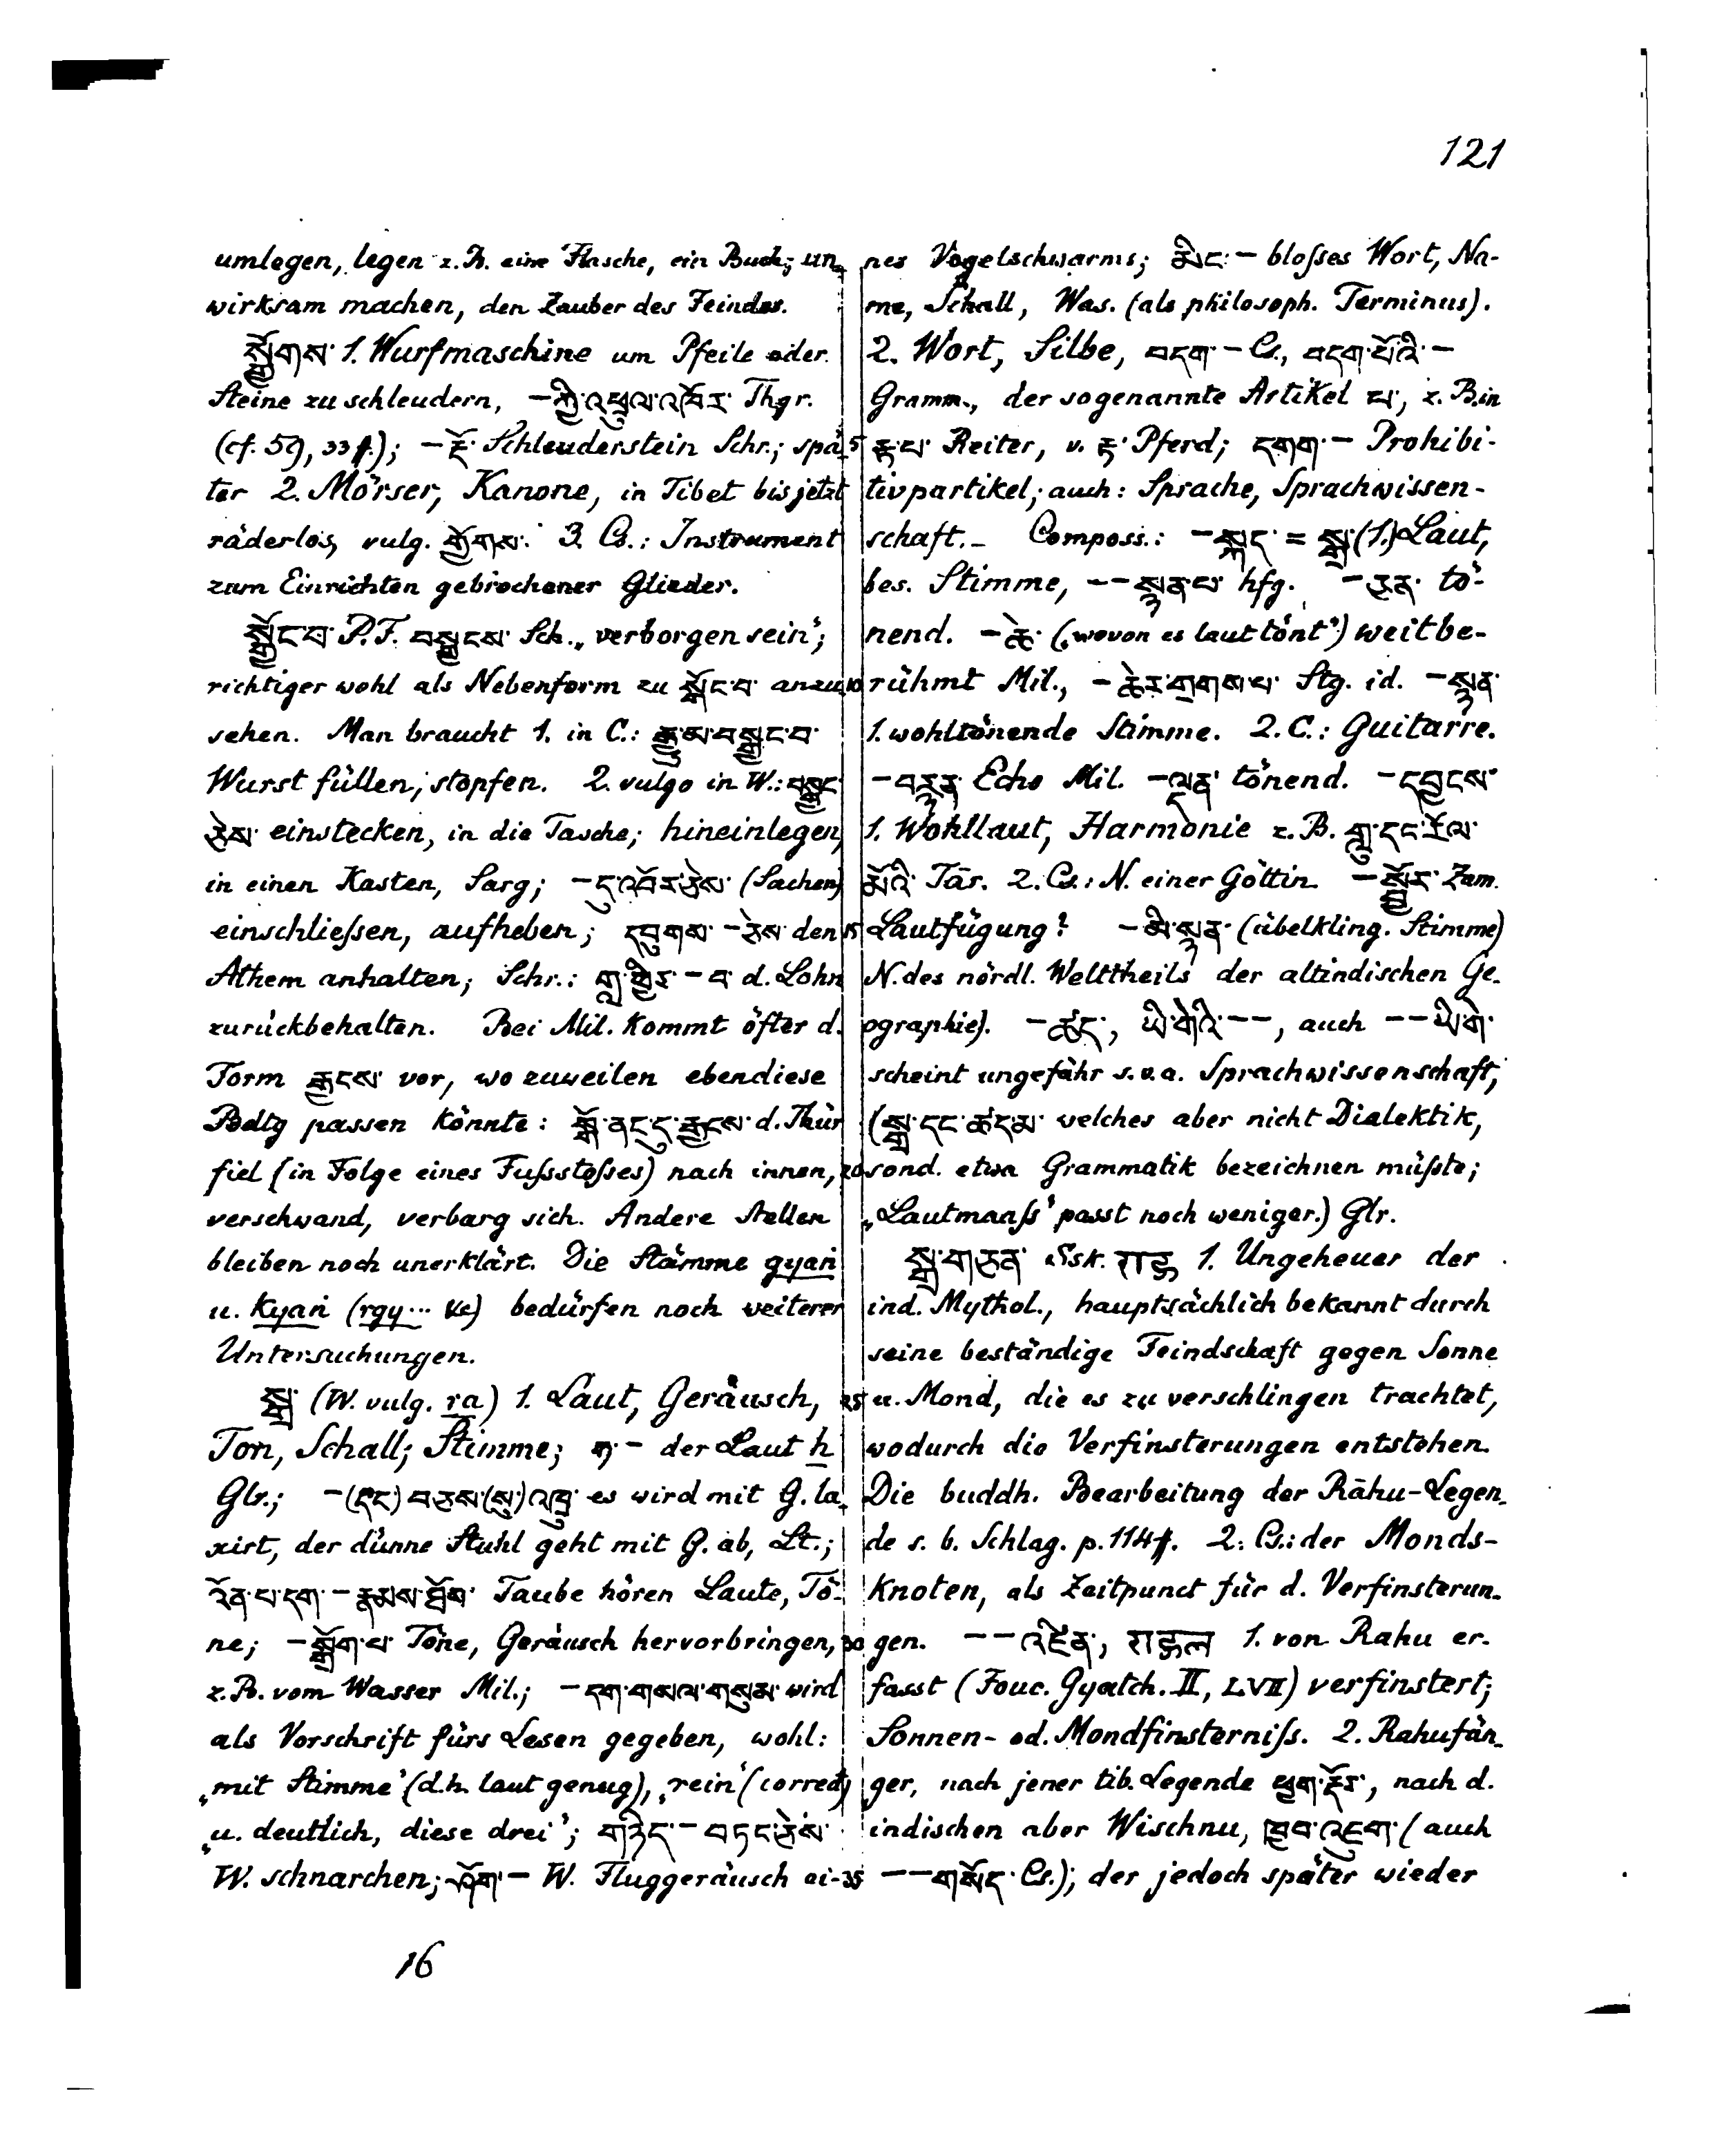 121
umlegen, legen z.B. eine Flasche, ein Buch; un-
wirksam machen, den Zauber des Feindes.
སྒྱོགས་ 1. Wurfmaschine um Pfeile oder
Steine zu schleudern, –ཀྱི་འཕྲུལ་འཁོར་ Thgr.
(cf. 59, 33 ff.); –རྡོ་ Schleuderstein Schr.; spä-
ter 2. Mörser, Kanone, in Tibet bis jetzt
räderlos, vulg. རྒྱོགས་. 3. Cs.: Instrument
zum Einrichten gebrochener Glieder.
སྒྱོང་བ་ P.F. བསྒྱངས་ Sch. „verborgen sein";
richtiger wohl als Nebenform zu སྐྱོང་བ་ anzu-
sehen. Man braucht 1. in C.: རྒྱུ་མ་བསྒྱང་བ་
Wurst füllen, stopfen. 2. vulgo in W.: བསྒྱང་
ཅེས་ einstecken, in die Tasche; hineinlegen,
in einen Kasten, Sarg; –དུ་འབོར་ཅེས་ (Sachen)
einschliessen, aufheben; དབུགས་ – ཅེས་ den
Athem anhalten; Schr.: གླ་ཕྱིར་ – བ་ d. Lohn
zurückbehalten. Bei Mil. kommt öfter d.
Form རྒྱངས་ vor, wo zuweilen ebendiese
Bdtg passen könnte: སྒོ་ནང་དུ་རྒྱངས་ d. Thür
fiel (in Folge eines Fussstosses) nach innen,
verschwand, verbarg sich. Andere Stellen
bleiben noch unerklärt. Die Stämme gyaṅ
u. kyaṅ (rgy... &c) bedürfen noch weiterer
Untersuchungen.
སྒྲ་ (W. vulg. ra) 1. Laut, Geräusch,
Ton, Schall; Stimme; ཧ་ – der Laut h
Glr.; –(དང་) བཅས་(སུ་)འཁྲུ་ es wird mit G. la-
xirt, der dünne Stuhl geht mit G. ab, Lt.;
འོན་པ་དག་ – རྣམས་ཐོས་ Taube hören Laute, Tö-
ne; –སྒྲོག་པ་ Töne, Geräusch hervorbringen,
z.B. vom Wasser Mil.; –དག་གསལ་གསུམ་ wird
als Vorschrift fürs Lesen gegeben, wohl:
„mit Stimme" (d.h. laut genug), „rein" (correct)
„u. deutlich, diese drei"; གཉིད་ – བཏང་ཅེས་
W. schnarchen; ཤོག་ – W. Fluggeräusch ei-
16
nes Vogelschwarms; མིང་ – blosses Wort, Na-
me, Schall, Was. (als philosoph. Terminus).
2. Wort, Silbe, བདག་ – Cs., བདག་པོའི་ –
Gramm., der sogenannte Artikel པ་, z.B. in
5 རྟ་པ་ Reiter, v. རྟ་ Pferd; དགག་ – Prohibi-
tivpartikel; auch: Sprache, Sprachwissen-
schaft. – Composs.: –སྐད་ = སྒྲ་ (1.) Laut,
bes. Stimme, – –སྙན་པ་ hfg. –ཅན་ tö-
nend. –ཆེ་ („wovon es laut tönt") weitbe-
10 rühmt Mil., –ཆེར་གྲགས་པ་ Stg. id. –སྙན་
1. wohltönende Stimme. 2. C.: Guitarre.
–བརྙན་ Echo Mil. –ལྡན་ tönend. –དབྱངས་
1. Wohllaut, Harmonie z.B. གླུ་དང་རོལ་
མོའི་ Tār. 2. Cs.: N. einer Göttin. –སྦྱོར་ Zam.
15 Lautfügung? –མི་སྙན་ (übelkling. Stimme)
N. des nördl. Welttheils der altindischen Ge-
ographie). –ཚད་, ཡི་གེའི་ – –, auch – –ཡི་གེ་
scheint ungefähr s.v.a. Sprachwissenschaft,
(སྒྲ་དང་ཚད་མ་ welches aber nicht Dialektik,
20 sond. etwa Grammatik bezeichnen müsste;
„Lautmaass" passt noch weniger.) Glr.
སྒྲ་གཅན་ Ssk. राहु 1. Ungeheuer der
ind. Mythol., hauptsächlich bekannt durch
seine beständige Feindschaft gegen Sonne
25 u. Mond, die es zu verschlingen trachtet,
wodurch die Verfinsterungen entstehen.
Die buddh. Bearbeitung der Rāhu-Legen-
de s. b. Schlag. p. 114 ff. 2. Cs.: der Monds-
knoten, als Zeitpunct für d. Verfinsterun-
30 gen. – –འཛིན་, राहुल 1. von Rahu er-
fasst (Fouc. Gyatch. II, LVII) verfinstert;
Sonnen- od. Mondfinsterniss. 2. Rahufän-
ger, nach jener tib. Legende ཕྱག་རྡོར་, nach d.
indischen aber Wischnu, ཁྱབ་འཇུག་ (auch
35 – –གསོད་ Cs.); der jedoch später wieder